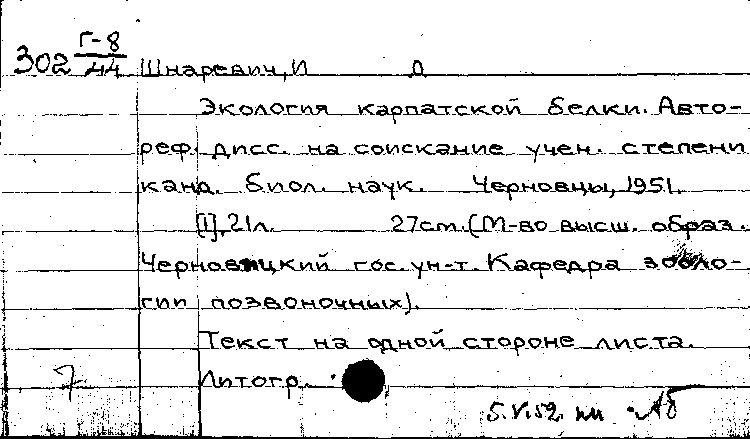 302 Г-8/44 Шнаревич, И Д
Экология карпатской белки. Авто-
реф. дисс. на соискание учен. степени
канд. биол. наук. Черновцы, 1951.
[1], 21л. 27см. (М-во высш. образ.
Черновицкий гос. ун-т. Кафедра зооло-
гии позвоночных).
Текст на одной стороне листа.
7 Литогр.
5.V.52